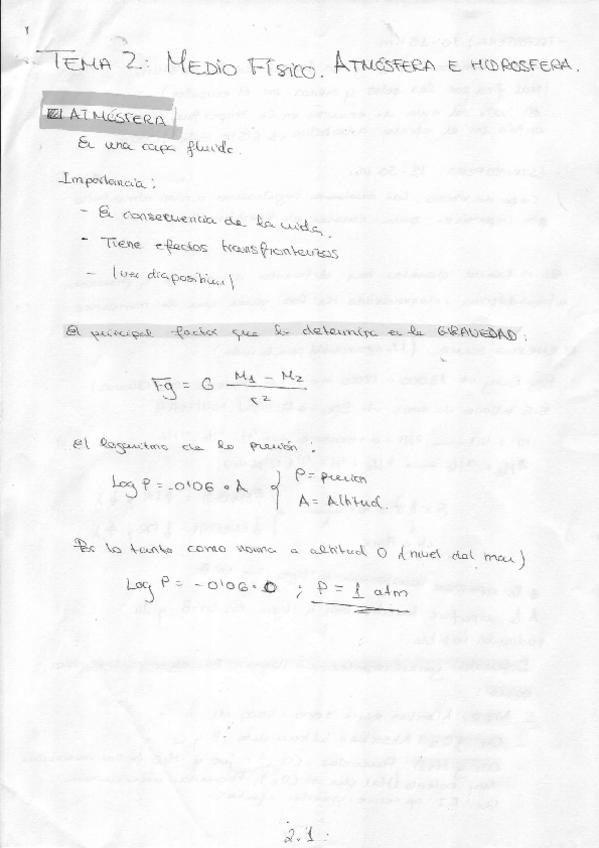 TEMA 2: MEDIO FÍSICO. ATMÓSFERA E HIDROSFERA.
ATMÓSFERA
Es una capa fluida.
Importancia:
- Es consecuencia de la vida.
- Tiene efectos transfronterizos
- (ver diapositiva)
El principal factor que la determina es la GRAVEDAD:
Fg = G (M1 - M2) / r²
El logaritmo de la presión:
Log P = -0'06 · A { P = presión
A = Altitud.
Por lo tanto como norma a altitud 0 (nivel del mar)
Log P = -0'06 · 0 ; P = 1 atm
2.1